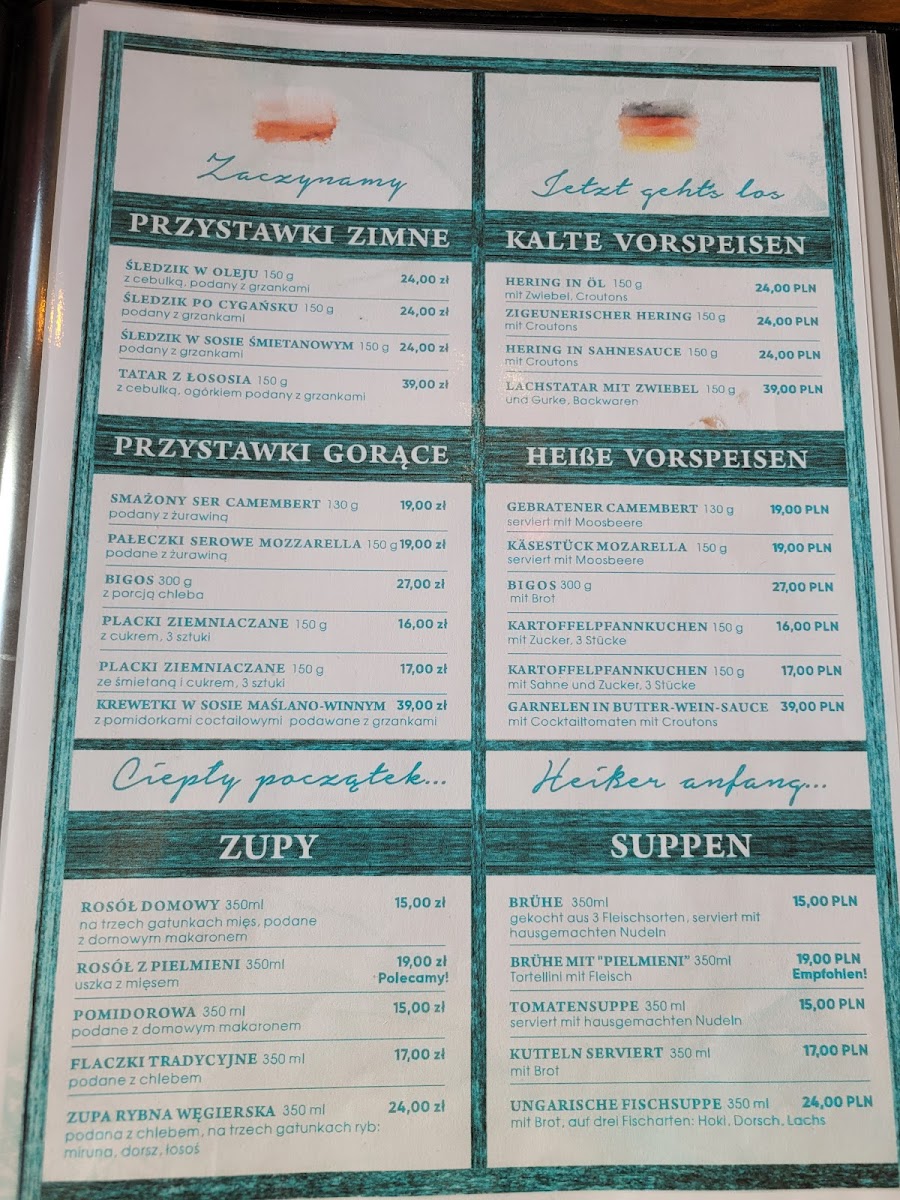 Zaczynamy
PRZYSTAWKI ZIMNE
ŚLEDZIK W OLEJU 150 g 24,00 zł
z cebulką, podany z grzankami
ŚLEDZIK PO CYGAŃSKU 150 g 24,00 zł
podany z grzankami
ŚLEDZIK W SOSIE ŚMIETANOWYM 150 g 24,00 zł
podany z grzankami
TATAR Z ŁOSOSIA 150 g 39,00 zł
z cebulką, ogórkiem podany z grzankami
PRZYSTAWKI GORĄCE
SMAŻONY SER CAMEMBERT 130 g 19,00 zł
podany z żurawiną
PAŁECZKI SEROWE MOZZARELLA 150 g 19,00 zł
podane z żurawiną
BIGOS 300 g 27,00 zł
z porcją chleba
PLACKI ZIEMNIACZANE 150 g 16,00 zł
z cukrem, 3 sztuki
PLACKI ZIEMNIACZANE 150 g 17,00 zł
ze śmietaną i cukrem, 3 sztuki
KREWETKI W SOSIE MAŚLANO-WINNYM 39,00 zł
z pomidorkami coctailowymi podawane z grzankami
Ciepły początek...
ZUPY
ROSÓŁ DOMOWY 350ml 15,00 zł
na trzech gatunkach mięs, podane
z domowym makaronem
ROSÓŁ Z PIELMIENI 350ml 19,00 zł
uszka z mięsem Polecamy!
POMIDOROWA 350 ml 15,00 zł
podane z domowym makaronem
FLACZKI TRADYCYJNE 350 ml 17,00 zł
podane z chlebem
ZUPA RYBNA WĘGIERSKA 350 ml 24,00 zł
podana z chlebem, na trzech gatunkach ryb:
miruna, dorsz, łosoś
Jetzt geht's los
KALTE VORSPEISEN
HERING IN ÖL 150 g 24,00 PLN
mit Zwiebel, Croutons
ZIGEUNERISCHER HERING 150 g 24,00 PLN
mit Croutons
HERING IN SAHNESAUCE 150 g 24,00 PLN
mit Croutons
LACHSTATAR MIT ZWIEBEL 150 g 39,00 PLN
und Gurke, Backwaren
HEIßE VORSPEISEN
GEBRATENER CAMEMBERT 130 g 19,00 PLN
serviert mit Moosbeere
KÄSESTÜCK MOZARELLA 150 g 19,00 PLN
serviert mit Moosbeere
BIGOS 300 g 27,00 PLN
mit Brot
KARTOFFELPFANNKUCHEN 150 g 16,00 PLN
mit Zucker, 3 Stücke
KARTOFFELPFANNKUCHEN 150 g 17,00 PLN
mit Sahne und Zucker, 3 Stücke
GARNELEN IN BUTTER-WEIN-SAUCE 39,00 PLN
mit Cocktailtomaten mit Croutons
Heißer anfang...
SUPPEN
BRÜHE 350ml 15,00 PLN
gekocht aus 3 Fleischsorten, serviert mit
hausgemachten Nudeln
BRÜHE MIT "PIELMIENI" 350ml 19,00 PLN
Tortellini mit Fleisch Empfohlen!
TOMATENSUPPE 350 ml 15,00 PLN
serviert mit hausgemachten Nudeln
KUTTELN SERVIERT 350 ml 17,00 PLN
mit Brot
UNGARISCHE FISCHSUPPE 350 ml 24,00 PLN
mit Brot, auf drei Fischarten: Hoki, Dorsch, Lachs